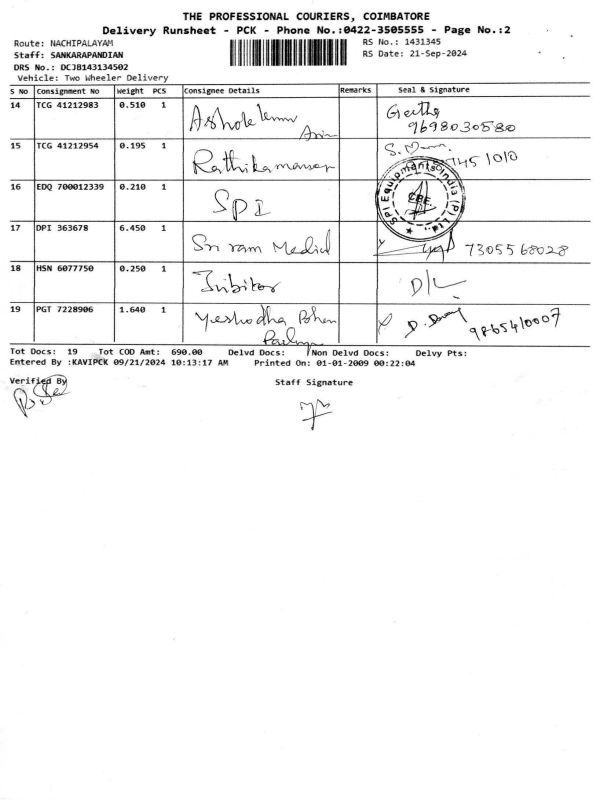 THE PROFESSIONAL COURIERS, COIMBATORE
Delivery Runsheet - PCK - Phone No.:0422-3505555 - Page No.:2
Route: NACHIPALAYAM
RS No.: 1431345
Staff: SANKARAPANDIAN
RS Date: 21-Sep-2024
DRS No.: DCJB143134502
Vehicle: Two Wheeler Delivery
S No Consignment No Weight PCS Consignee Details Remarks Seal & Signature
14 TCG 41212983 0.510 1
Geetha
9698030580
15 TCG 41212954 0.195 1
16 EDQ 700012339 0.210 1 SPI
SPI Equipments India (P) Ltd.,
CBE.
17 DPI 363678 6.450 1 Sri ram Medicl 7305568028
18 HSN 6077750 0.250 1 D/L
19 PGT 7228906 1.640 1 Yeshodha
Tot Docs: 19 Tot COD Amt: 690.00 Delvd Docs: Non Delvd Docs: Delvy Pts:
Entered By :KAVIPCK 09/21/2024 10:13:17 AM Printed On: 01-01-2009 00:22:04
Verified By
Staff Signature